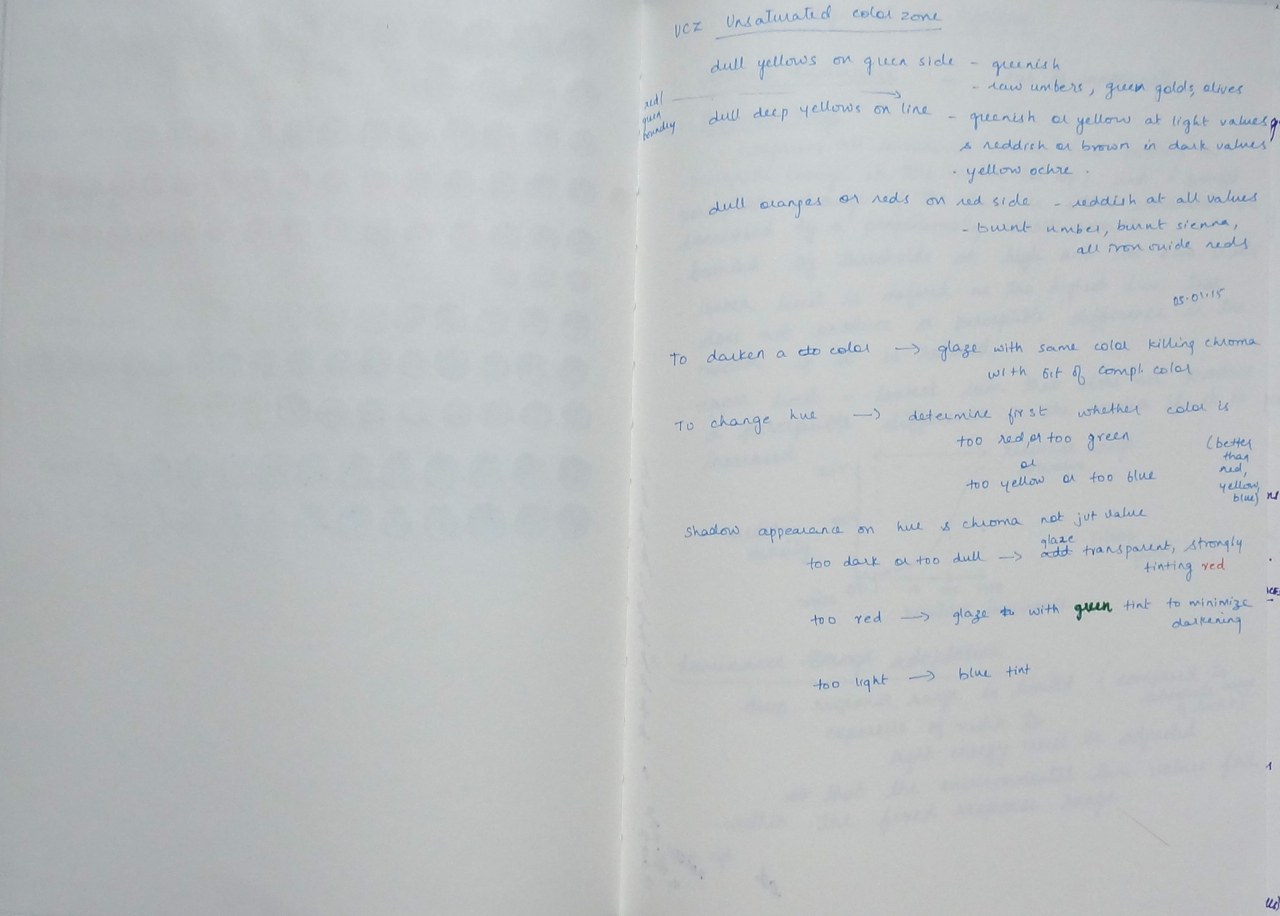 UCZ Unsaturated color zone
dull yellows on green side - greenish
- raw umbers, green golds, olives
red/
green
boundary
dull deep yellows on line - greenish or yellow at light values
& reddish or brown in dark values
. yellow ochre .
dull oranges or reds on red side - reddish at all values
- burnt umber, burnt sienna,
all iron oxide reds
05.01.15
To darken a color → glaze with same color killing chroma
with bit of compl. color
To change hue → determine first whether color is
too red, or too green
or
too yellow or too blue
(better
than
red,
yellow,
blue)
Shadow appearance on hue & chroma not jut value
too dark or too dull → glaze transparent, strongly
tinting red
too red → glaze with green tint to minimize
darkening
too light → blue tint